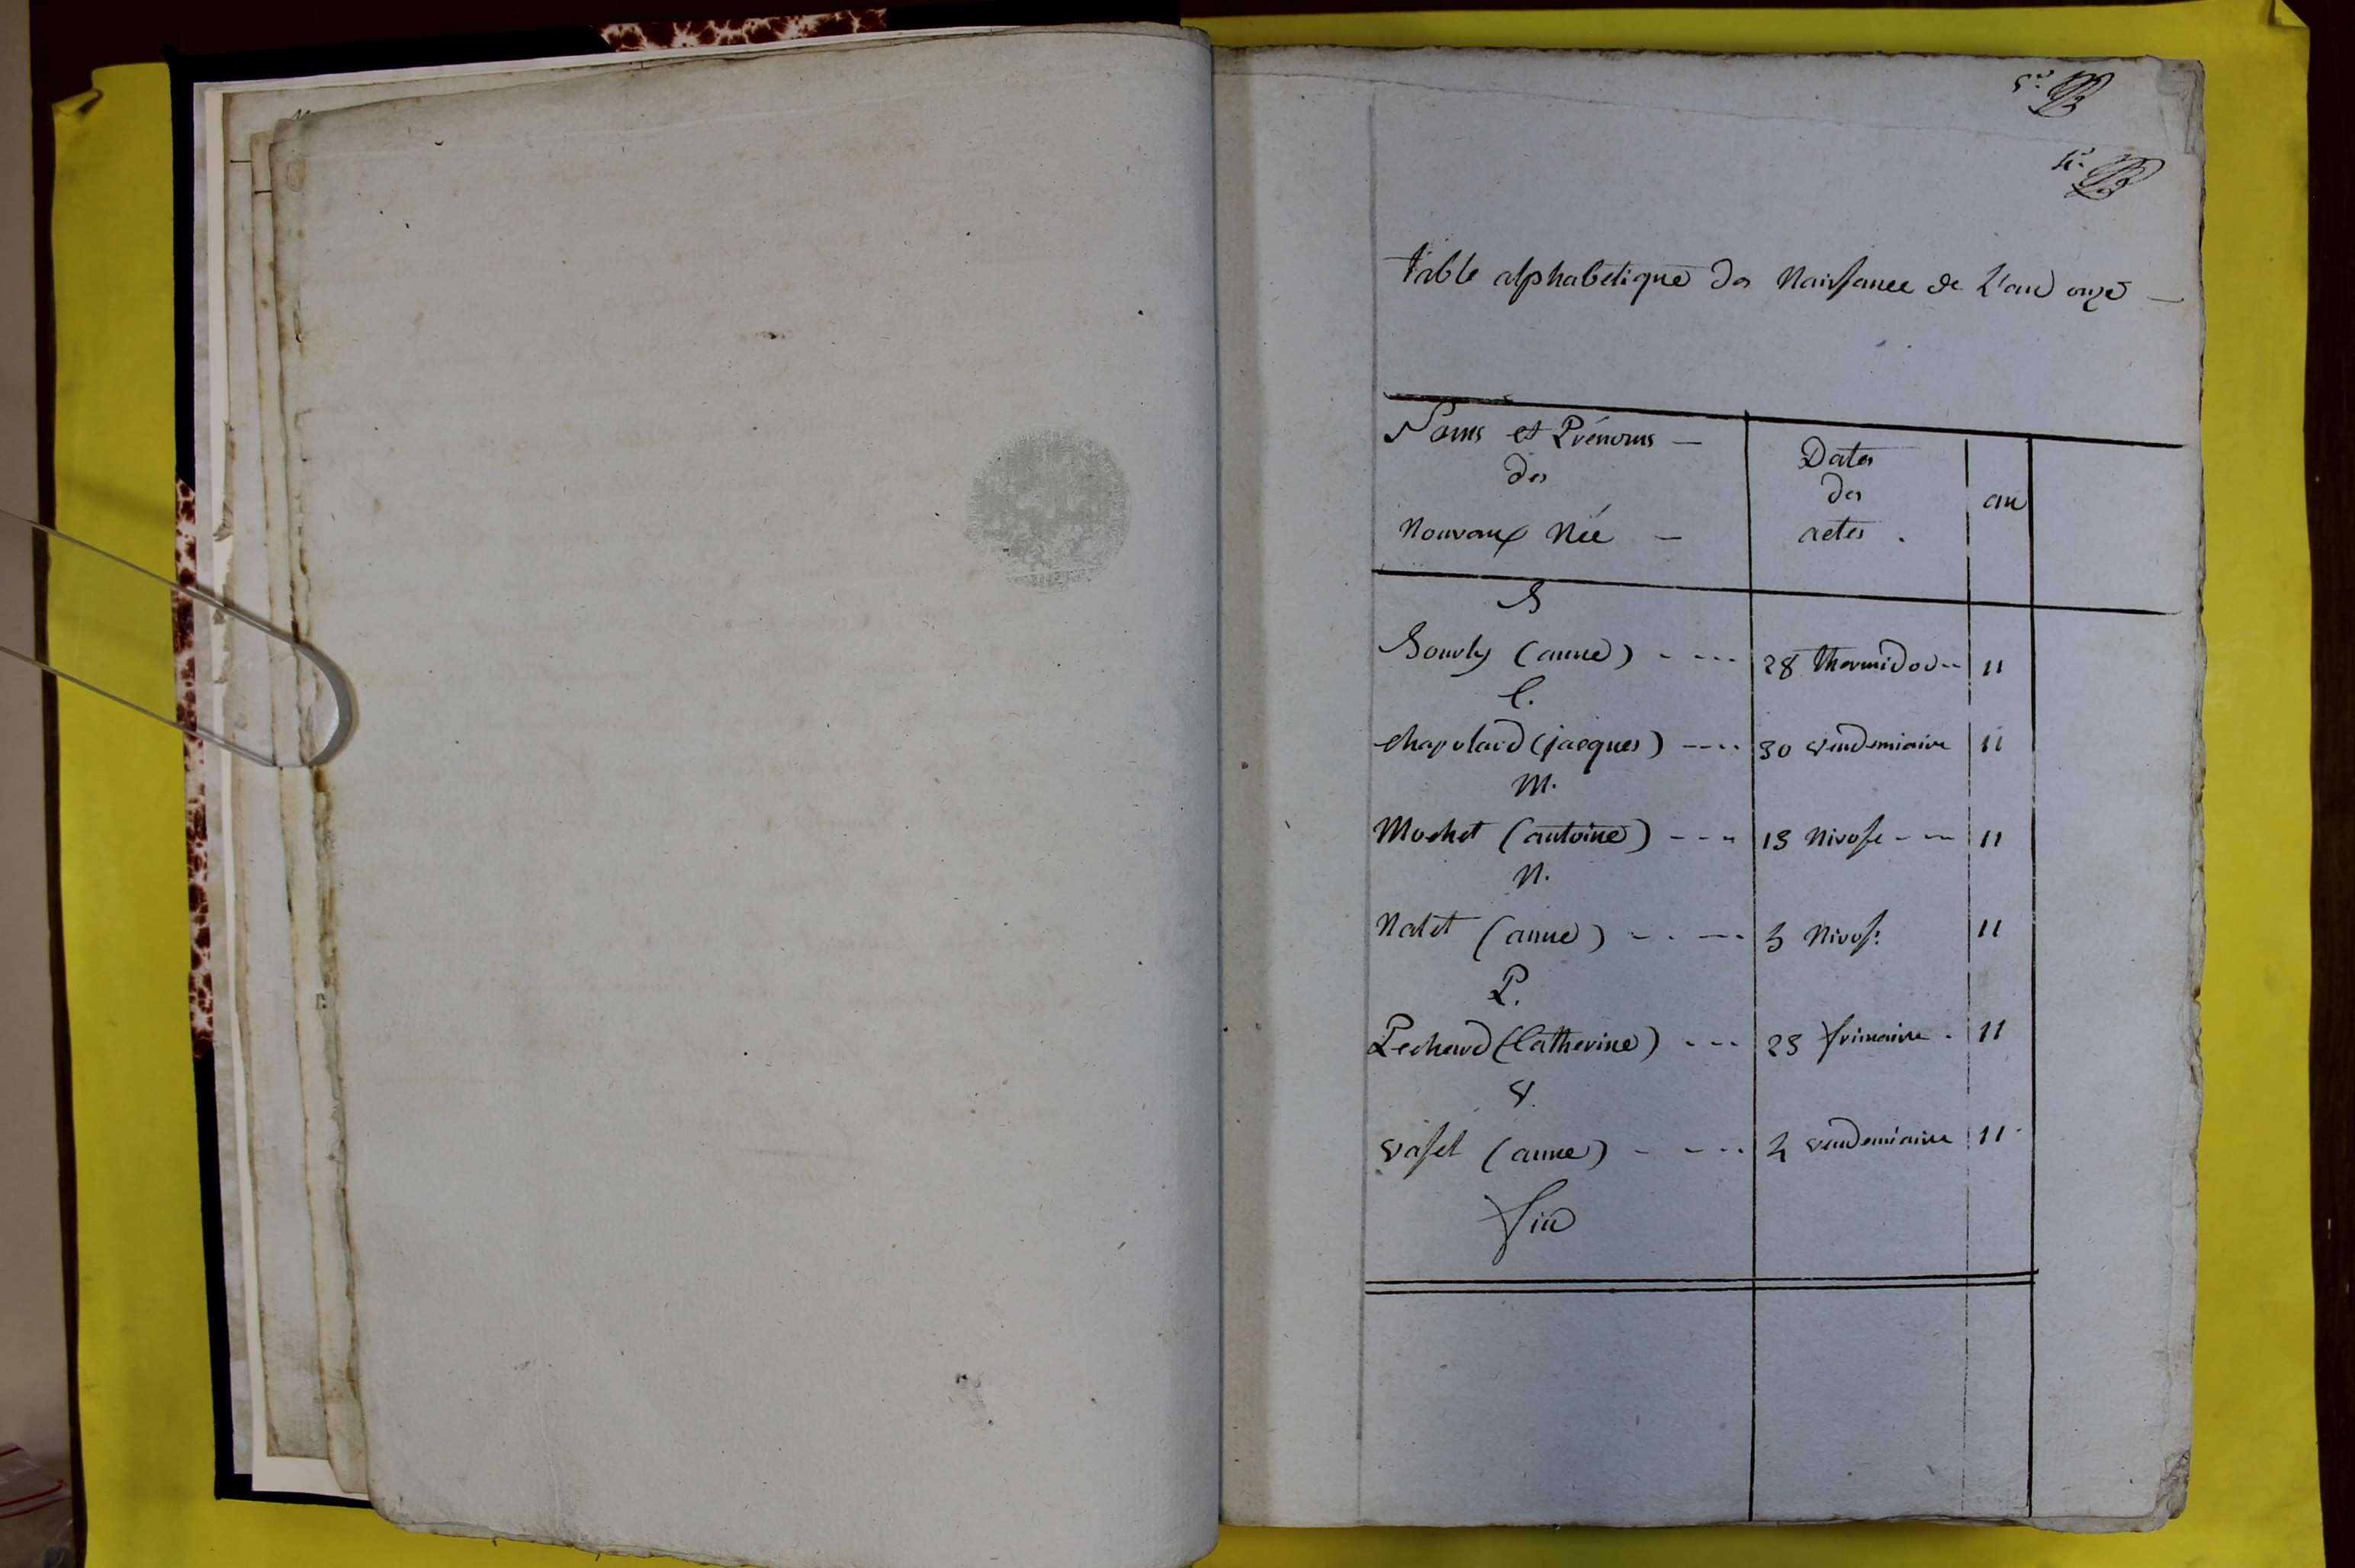 table alphabetique des Naissance de L'an onze
Noms et Prénoms
des
Nouvaux Née
Dates
des
actes
an
B
Bourly (anne) 28 thermidor 11
C.
Chapelard (jacques) 30 vendemiaire 11
M.
Mochet (antoine) 13 Nivose 11
N.
Natet (anne) 3 Nivose 11
P.
Pechard (Catherine) 23 frimaire 11
V.
Vasel (anne) 4 vendemiaire 11
fin